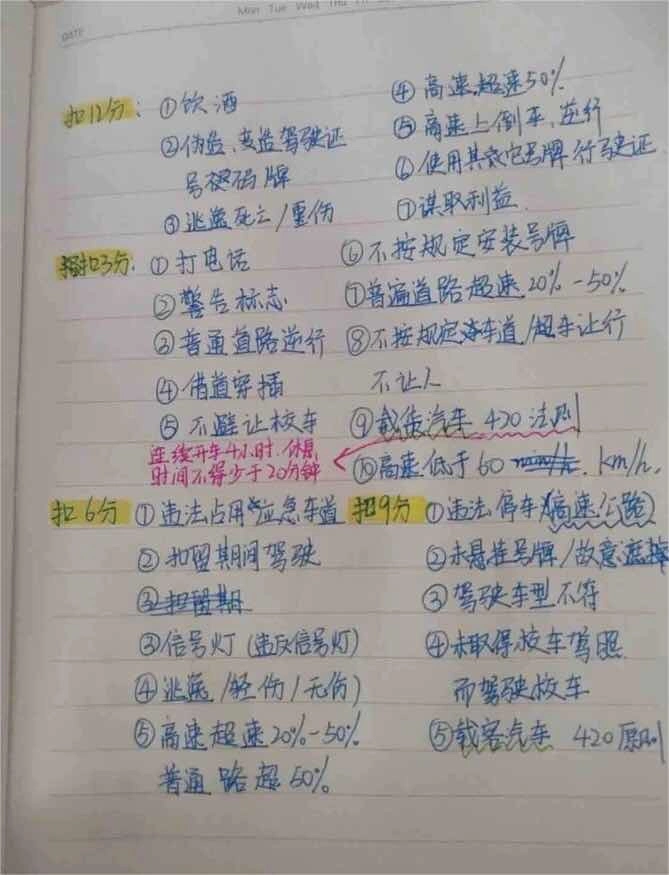 Mon Tue Wed Thu Fri
DATE
扣12分: ①饮酒
②伪造、变造驾驶证
号牌
③逃逸死亡/重伤
④高速超速50%
⑤高速上倒车、逆行
⑥使用其它号牌行驶证
⑦谋取利益
扣3分: ①打电话
②警告标志
③普通道路逆行
④借道穿插
⑤不避让校车
连续开车4小时.休息
时间不得少于20分钟
⑥不按规定安装号牌
⑦普遍道路超速20%-50%
⑧不按规定车道/超车让行
不让人
⑨载货汽车 420法则
⑩高速低于60 km/h.
扣6分 ①违法占用应急车道
②扣留期间驾驶
③扣留期
③信号灯(违反信号灯)
④逃逸/轻伤/无伤)
⑤高速超速20%-50%
普通路超50%
扣9分 ①违法停车(高速公路)
②未悬挂号牌/故意遮挡
③驾驶车型不符
④未取得校车驾照
而驾驶校车
⑤载客汽车 420原则